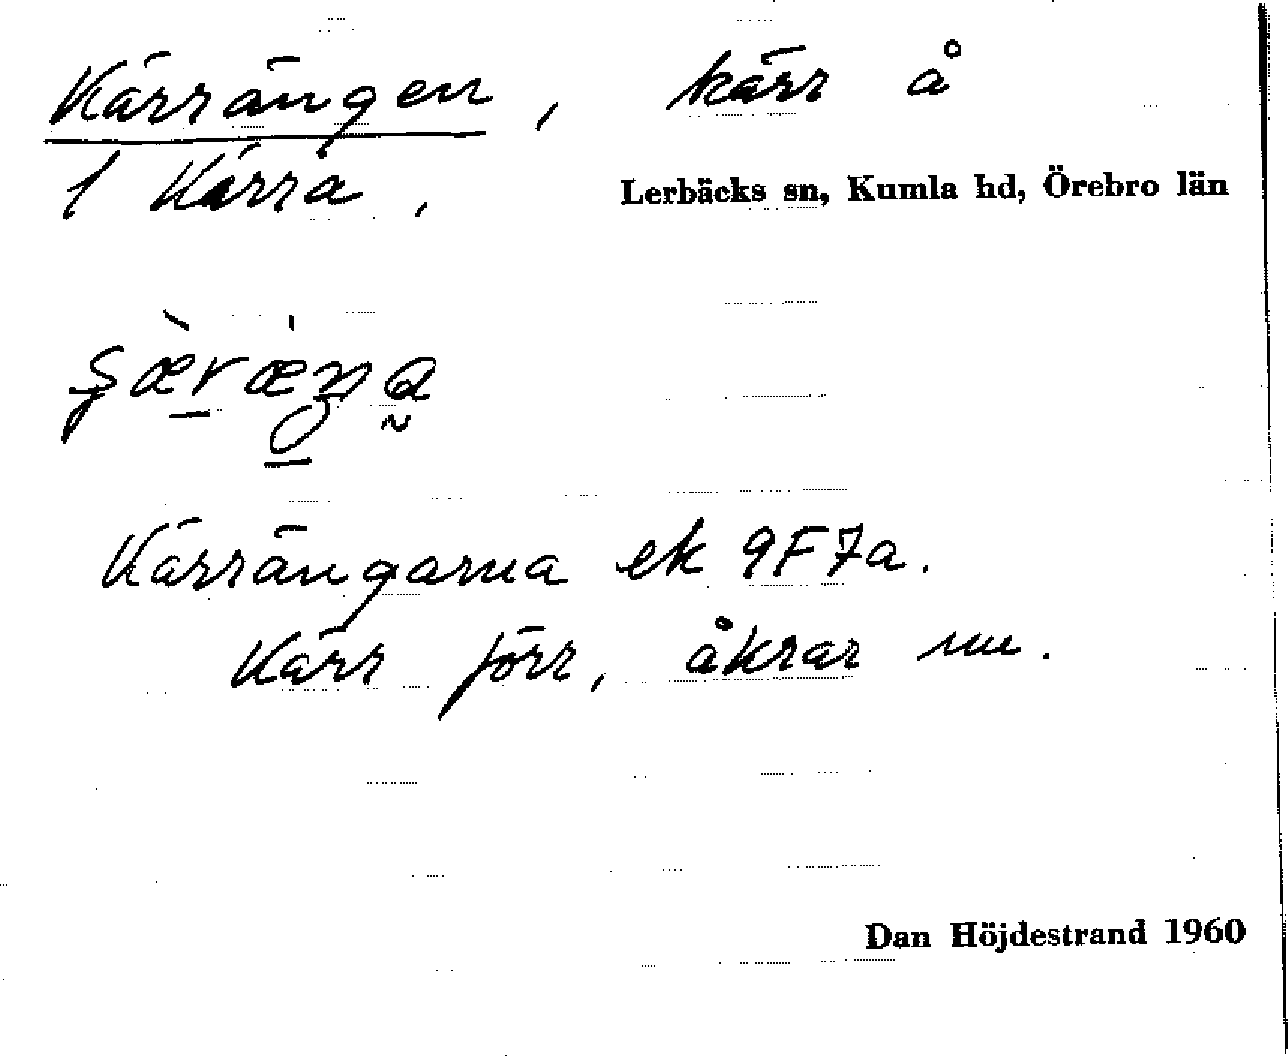 Kärrängen, kärr å
1 Kärra, Lerbäcks sn, Kumla hd, Örebro län
Kärrängarna ek 9F7a.
Kärr förr, åkrar nu.
Dan Höjdestrand 1960